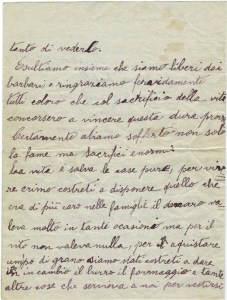 tanto di vederlo.
Esultiamo insieme che siamo liberi dai
barbari e ringraziamo fervidamente
tutti coloro che col sacrificio della vita
concorsero a vincere questa dura prova
Certamente abiamo soferto non solo
la fame ma sacrifici enormi
La vita è salva le case pure, per vive
re erimo costreti a disponere quello che
era di più caro nelle famiglie il denaro va
leva molto in tante ocasioni ma per il
vito non valeva nulla, per il aquistare
un po di grano siamo stati costreti a dare
in cambio il burro il formaggio e tante
altre cose che serviva a noi per vestirsi